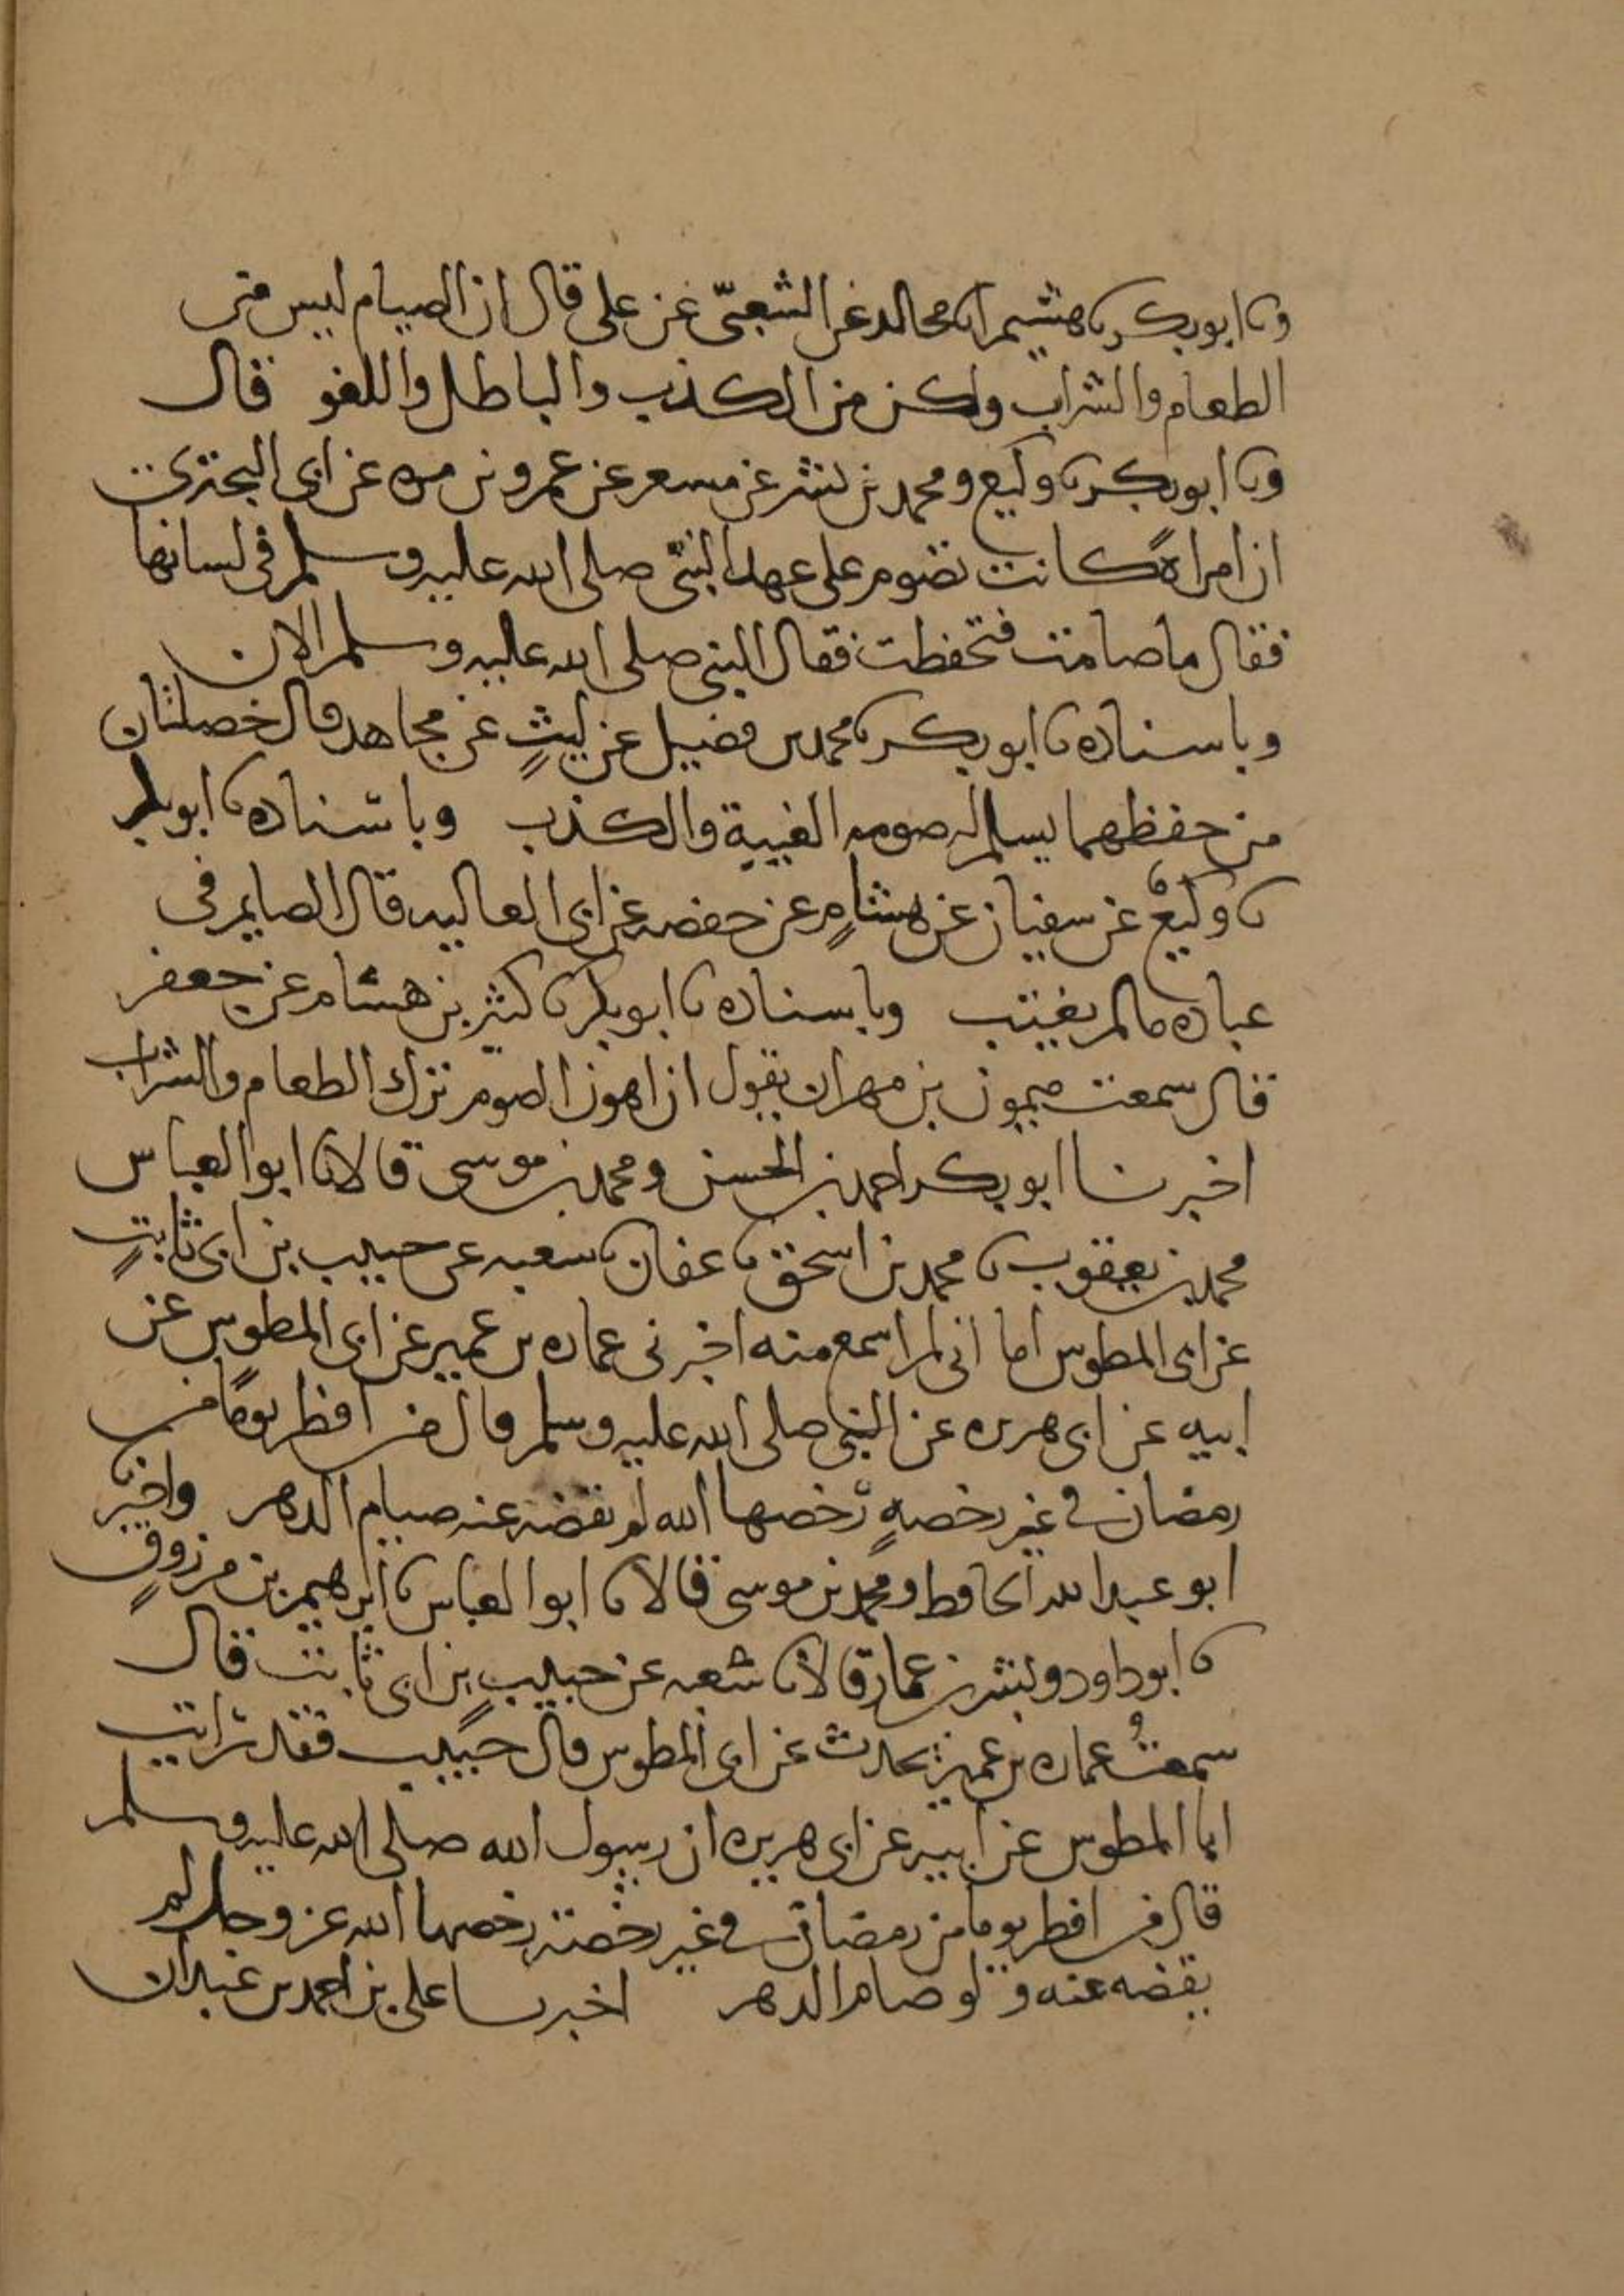 ونا ابو بكر نا هشيم انا مجالد عن الشعبي عن علي قال ان الصيام ليس من
الطعام والشراب ولكن من الكذب والباطل واللغو قال
ونا ابو بكر نا وكيع ومحمد بن بشر عن مسعر عن عمرو بن مره عن ابي البختري
ان امراةً كانت تصوم على عهد النبي صلى الله عليه وسلم في لسانها
فقال ما صامت فتحفظت فقال النبي صلى الله عليه وسلم الان
وباسناده نا ابو بكر نا محمد بن فضيل عن ليثٍ عن مجاهد قال خصلتان
من حفظهما يسلم له صومه الغيبة والكذب وباسناده نا ابو بكر
نا وكيعٌ عن سفيان عن هشامٍ عن حفصه عن ابي العاليه قال الصايم في
عباده مالم يغتب وباسناده نا ابو بكر نا كثير بن هشام عن جعفر
قال سمعت ميمون بن مهران يقول ان اهون الصوم ترك الطعام والشراب
اخبرنا ابو بكر احمد بن الحسن ومحمد بن موسى قالا نا ابو العباس
محمد بن يعقوب نا محمد بن اسحق نا عفان نا شعبه عن حبيب بن ابي ثابتٍ
عن ابي المطوس اما اني لم اسمع منه اخبرني عماره بن عمير عن ابي المطوس عن
ابيه عن ابي هريره عن النبي صلى الله عليه وسلم قال من افطر يومًا من
رمضان في غير رخصهٍ رخصها الله لم تقضه عنه صيام الدهر واخبرنا
ابو عبد الله الحافظ ومحمد بن موسى قالا نا ابو العباس نا ابرهيم بن مرزوقٍ
نا ابو داود وبشر بن عمار قالا نا شعبه عن حبيبٍ بن ابي ثابت قال
سمعتُ عماره بن عمير يحدث عن ابي المطوس قال حبيب فقد رايت
ابا المطوس عن ابيه عن ابي هريره ان رسول الله صلى الله عليه وسلم
قال من افطر يوما من رمضان في غير رخصة رخصها الله عز وجل لم
يقضه عنه ولو صام الدهر اخبرنا علي بن احمد بن عبدان